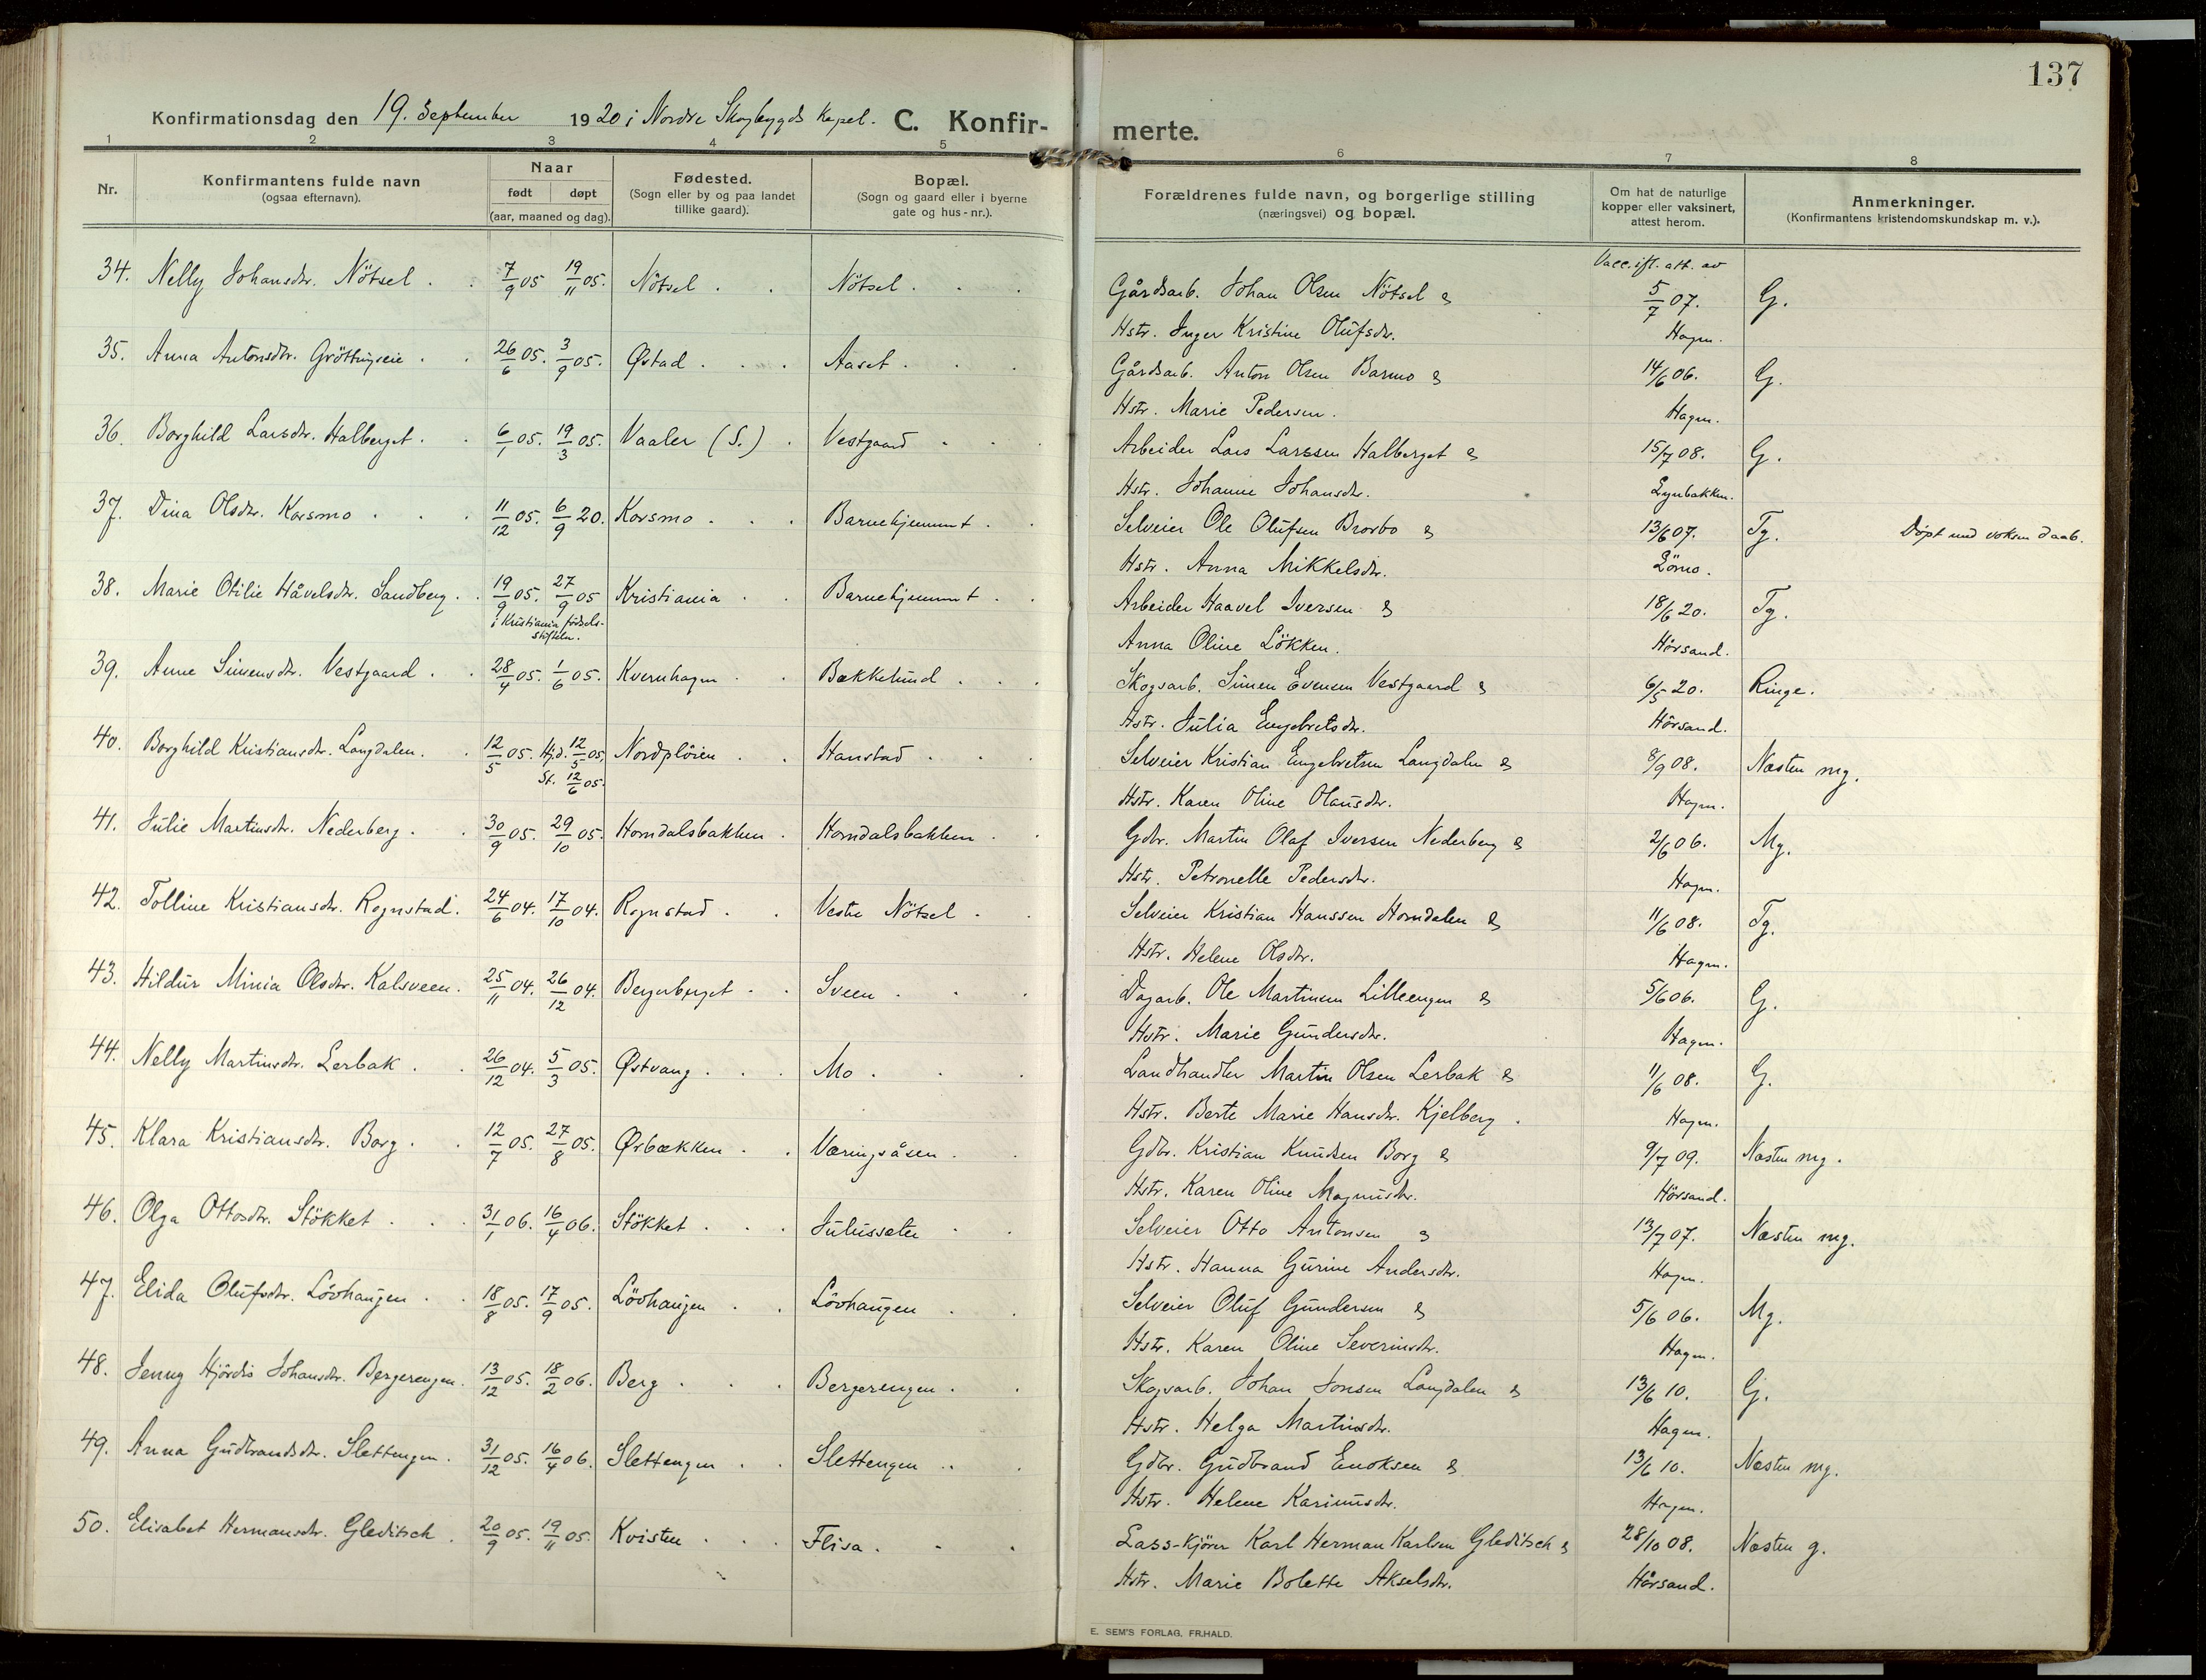 137
Konfirmationsdag den 19. September 1920 i Nordre Skogbygds Kapel. C. Konfir-merte.
1 2 3 4 5 6 7 8
Nr. Konfirmantens fulde navn (ogsaa efternavn). Naar født døpt (aar, maaned og dag). Fødested. (Sogn eller by og paa landet tillike gaard). Bopæl. (Sogn og gaard eller i byerne gate og hus-nr.). Forældrenes fulde navn, og borgerlige stilling (næringsvei) og bopæl. Om hat de naturlige kopper eller vaksinert, attest herom. Anmerkninger. (Konfirmantens kristendomskundskap m. v.).
Vacc. ifl. att. av
34. Nelly Johansdtr. Nötsel . . 7/9 05 19/11 05. Nötsel . . Nötsel . . . Gårdsarb. Johan Olsen Nötsel & 5/7 07. G.
Hstr. Inger Kristine Olufsdtr. Hagen.
35. Anna Antonsdtr. Gröttingseie . . 26/6 05. 3/9 05. Østad . . . Aaset . . . Gårdsarb. Anton Olsen Barmo & 14/6 06. G.
Hstr. Marie Pedersen. Hagen.
36. Borghild Larsdtr. Halberget . . 6/1 05. 19/3 05. Vaaler (S.) . Vestgaard . . . Arbeider Lars Larssen Halberget & 15/7 08. G.
Hstr. Johanne Johansdtr. Lynbakken.
37. Dina Olsdtr. Korsmo . . . 11/12 05. 6/9 20. Korsmo . . . Barnehjemmet . . Selveier Ole Olufsen Brorbo & 13/6 07. Tg. Döpt med voksen daab.
Hstr. Anna Mikkelsdtr. Lömo.
38. Marie Otilie Håvelsdtr. Sandberg . . 19/9 05. 27/9 05 Kristiania . . Barnehjemmet . . Arbeider Haavel Iversen & 18/6 20. Tg.
i Kristiania fødsels-
stiftelse.
Anna Oline Lökken. Hörsand.
39. Anne Simensdtr. Vestgaard . . 28/4 05. 1/6 05. Kvernhagen . . Bækkelund . . . Skogsarb. Simen Evensen Vestgaard & 6/5 20. Ringe.
Hstr. Julia Engebretsdtr. Hörsand.
40. Borghild Kristiansdtr. Langdalen. . 12/5 05. Hj.d. 12/5 05, Nordplöien . . Hanstad . . . Selveier Kristian Engebretsen Langdalen & 8/9 08. Næsten mg.
St. 12/6 05.
Hstr. Karen Oline Olausdtr. Hagen.
41. Julie Martinsdtr. Nederberg . . 30/9 05. 29/10 05. Horndalsbakken . Horndalsbakken . . Gdbr. Martin Olaf Iversen Nederberg & 2/6 06. Mg.
Hstr. Petronelle Pedersdtr. Hagen.
42. Tolline Kristiansdtr. Rognstad. 24/6 04. 17/10 04. Rognstad . . Vestre Nötsel . . Selveier Kristian Hanssen Horndalen & 11/6 08. Tg.
Hstr. Helene Olsdtr. Hagen.
43. Hildur Minia Olsdtr. Kalsveen. 25/11 04. 26/12 04. Bergerberget . . Sveen . . . Dagarb. Ole Martinsen Lilleengen & 5/6 06. G.
Hstr. Marie Gundersdtr. Hagen.
44. Nelly Martinsdtr. Lerbak . . 26/12 04. 5/3 05. Østvang . . . Mo . . . Landhandler Martin Olsen Lerbak & 11/6 08. G.
Hstr. Berte Marie Hansdtr. Kjelberg . Hagen.
45. Klara Kristiansdtr. Borg . . 12/7 05. 27/8 05. Ørbækken . . Væringsåsen . . Gdbr. Kristian Knudsen Borg & 9/7 09. Næsten mg.
Hstr. Karen Oline Magnusdtr. Hörsand.
46. Olga Ottosdtr. Stökket . . . 31/1 06. 16/4 06. Stökket . . . Julussæter . . Selveier Otto Antonsen & 13/7 07. Næsten mg.
Hstr. Hanna Gurine Andersdtr. Hagen.
47. Elida Olufsdtr. Lövhaugen . . 18/8 05. 17/9 05. Lövhaugen . . Lövhaugen . . Selveier Oluf Gundersen & 5/6 06. Mg.
Hstr. Karen Oline Severinsdtr. Hagen.
48. Jenny Hjördis Johansdtr. Bergerengen. 13/12 05. 18/2 06. Berg . . . Bergerengen . . Skogsarb. Johan Jonsen Langdalen & 13/6 10. G.
Hstr. Helga Martinsdtr. Hagen.
49. Anna Gudbrandsdtr. Slettengen. 31/12 05. 16/4 06. Slettengen . . Slettengen . . Gdbr. Gudbrand Enoksen & 13/6 10. Næsten mg.
Hstr. Helene Kariusdtr. Hagen.
50. Elisabet Hermansdtr. Gleditsch . 20/9 05. 19/11 05. Kvisten . . . Flisa . . . Lass-kjörer Karl Herman Karlsen Gleditsch & 28/10 08. Næsten g.
Hstr. Marie Bolette Akselsdtr. Hörsand.
E. SEM'S FORLAG, FR.HALD.